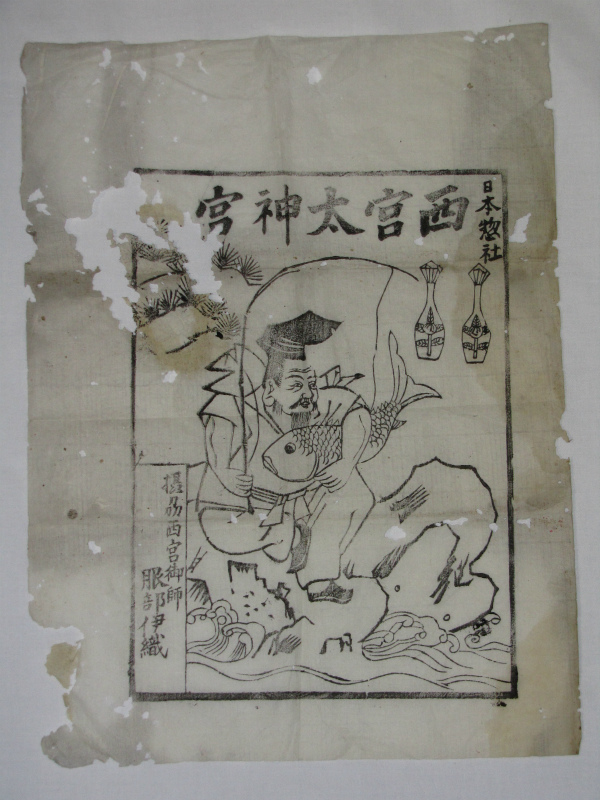 日本惣社
西宮太神宮
摂刕西宮御師
服部伊織